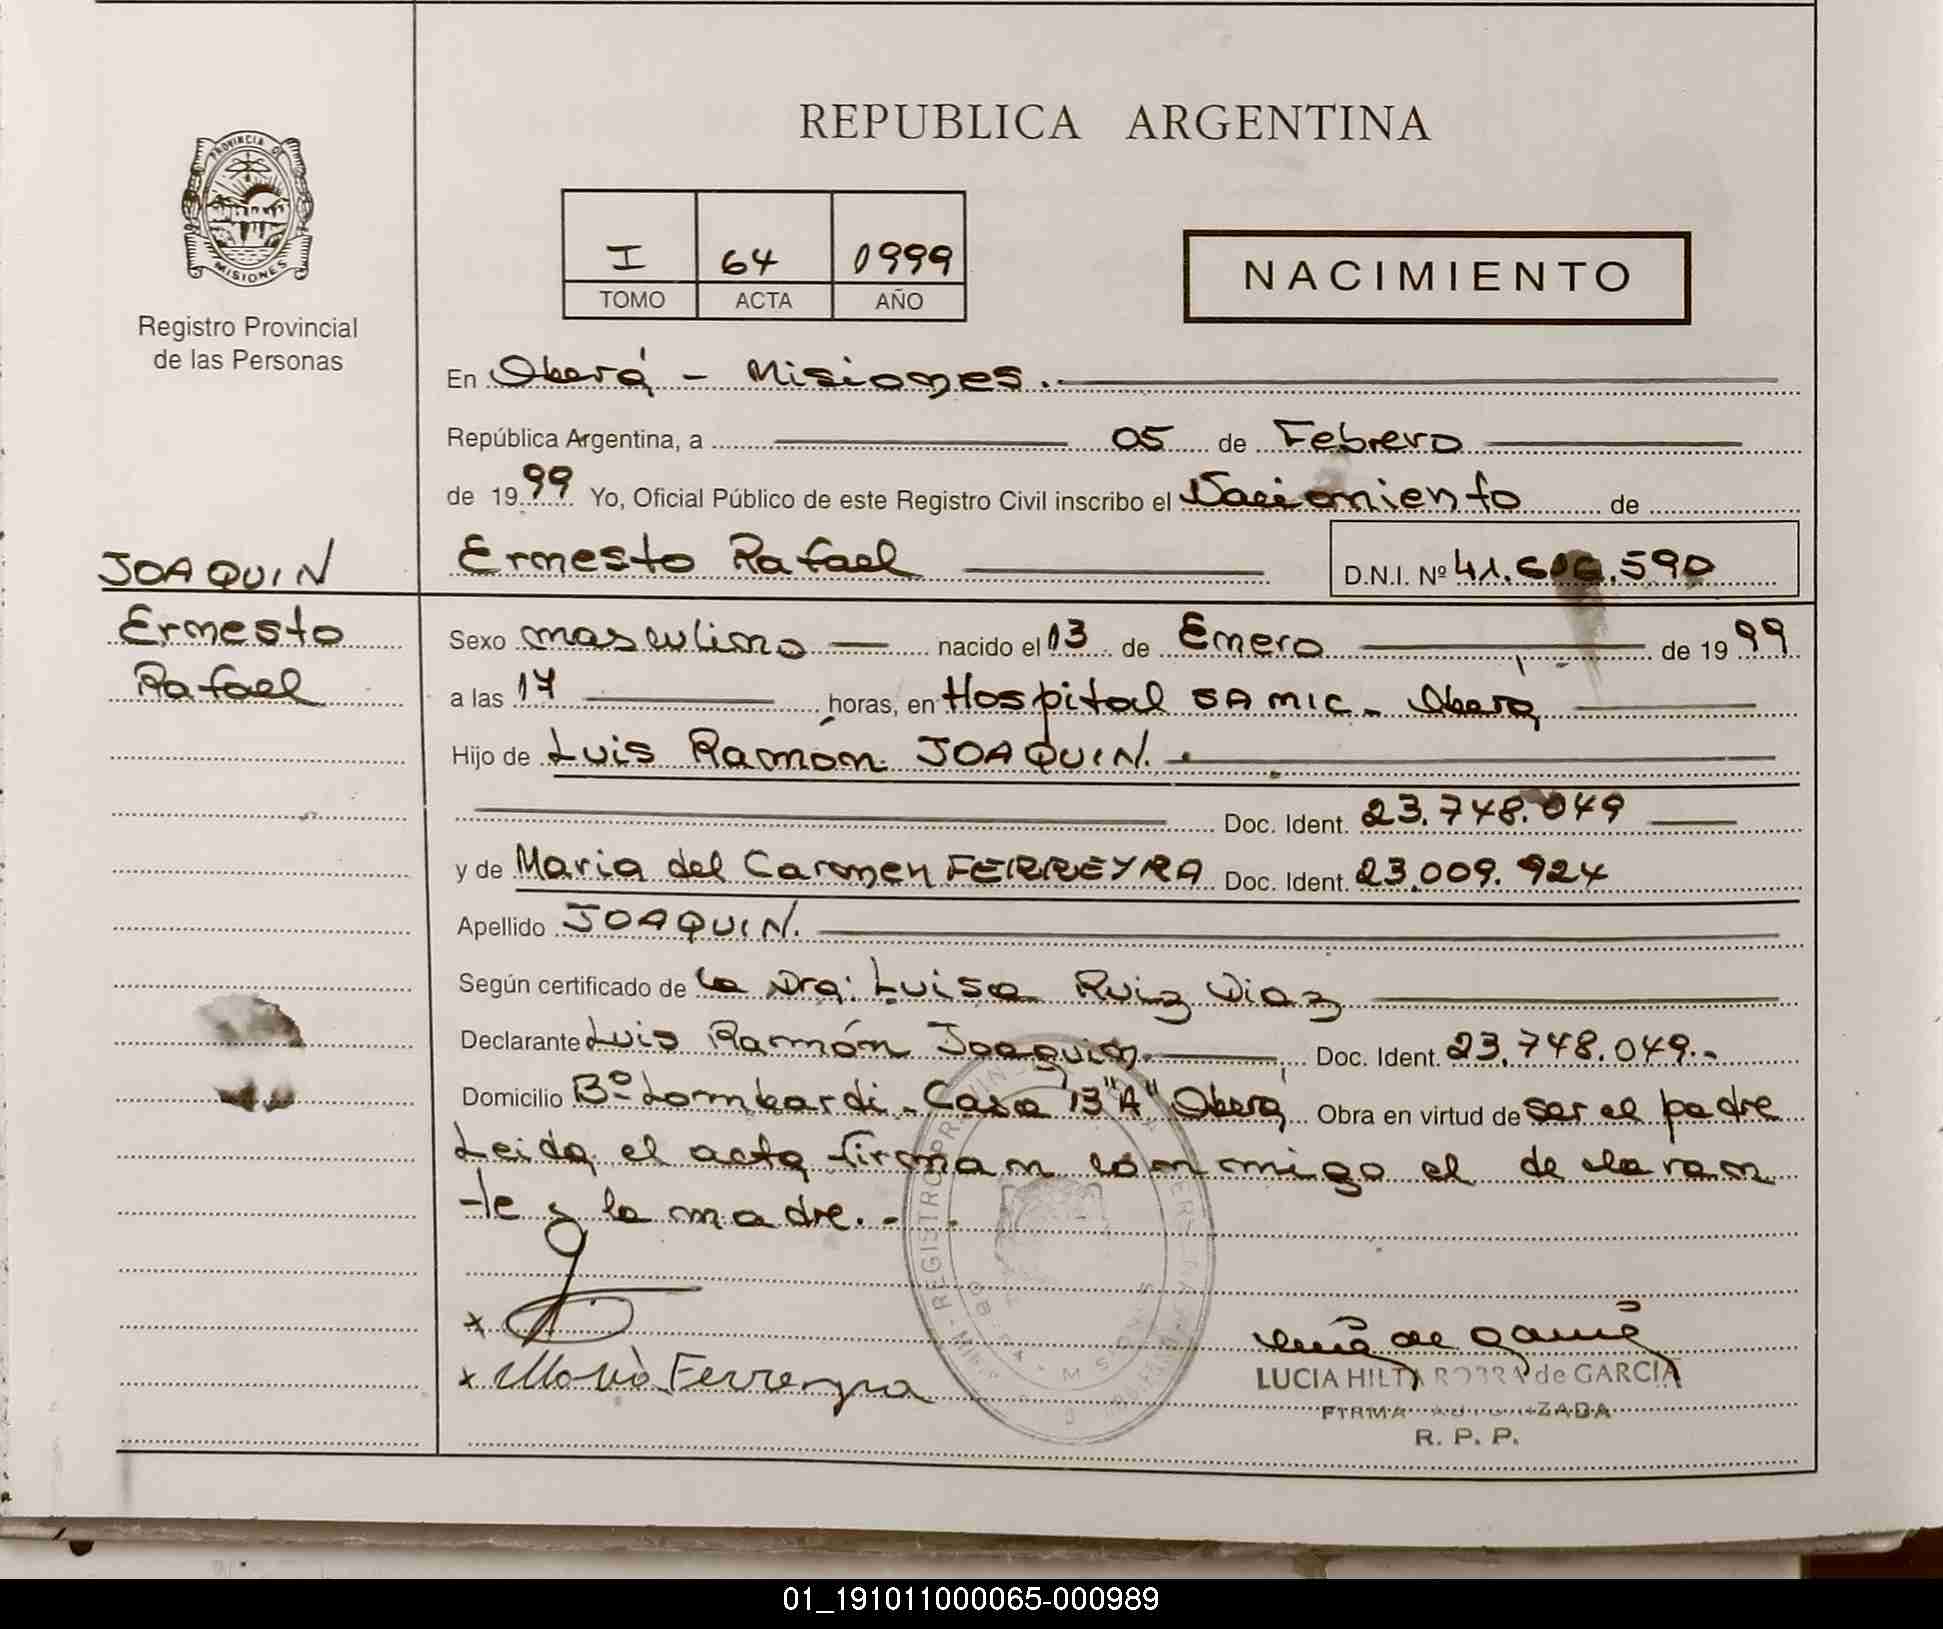 REPUBLICA ARGENTINA
PROVINCIA DE
MISIONES
Registro Provincial
de las Personas
I 64 1999
TOMO ACTA AÑO
NACIMIENTO
En Oberá - Misiones.
República Argentina, a 05 de Febrero
de 1999 Yo, Oficial Público de este Registro Civil inscribo el Nacimiento de
JOAQUIN
Ernesto
Rafael
Ernesto Rafael D.N.I. Nº 41. .590
Sexo masculino nacido el 13 de Enero de 1999
a las 17 horas, en Hospital SAMIC - Oberá
Hijo de Luis Ramón JOAQUIN.
Doc. Ident. 23.748.049
y de Maria del Carmen FERREYRA Doc. Ident. 23.009.924
Apellido JOAQUIN.
Según certificado de la Dra: Luisa Ruiz Diaz
Declarante Luis Ramón Joaquin Doc. Ident. 23.748.049.-
Domicilio Bº Lombardi - Casa 13 "A" Oberá Obra en virtud de ser el padre
Leida el acta firman conmigo el declaran
-te y la madre. -
x
x Maria Ferreyra
LUCIA HILDA de GARCIA
FIRMA AUTORIZADA
R. P. P.
01_191011000065-000989